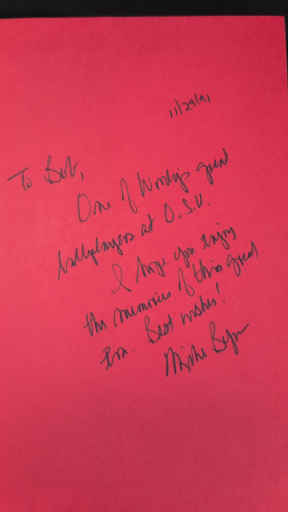 11/29/91
To Bob,
One of Woody's great
ballplayers at O.S.U.
I hope you enjoy
the memories of this great
Best wishes!
Mike